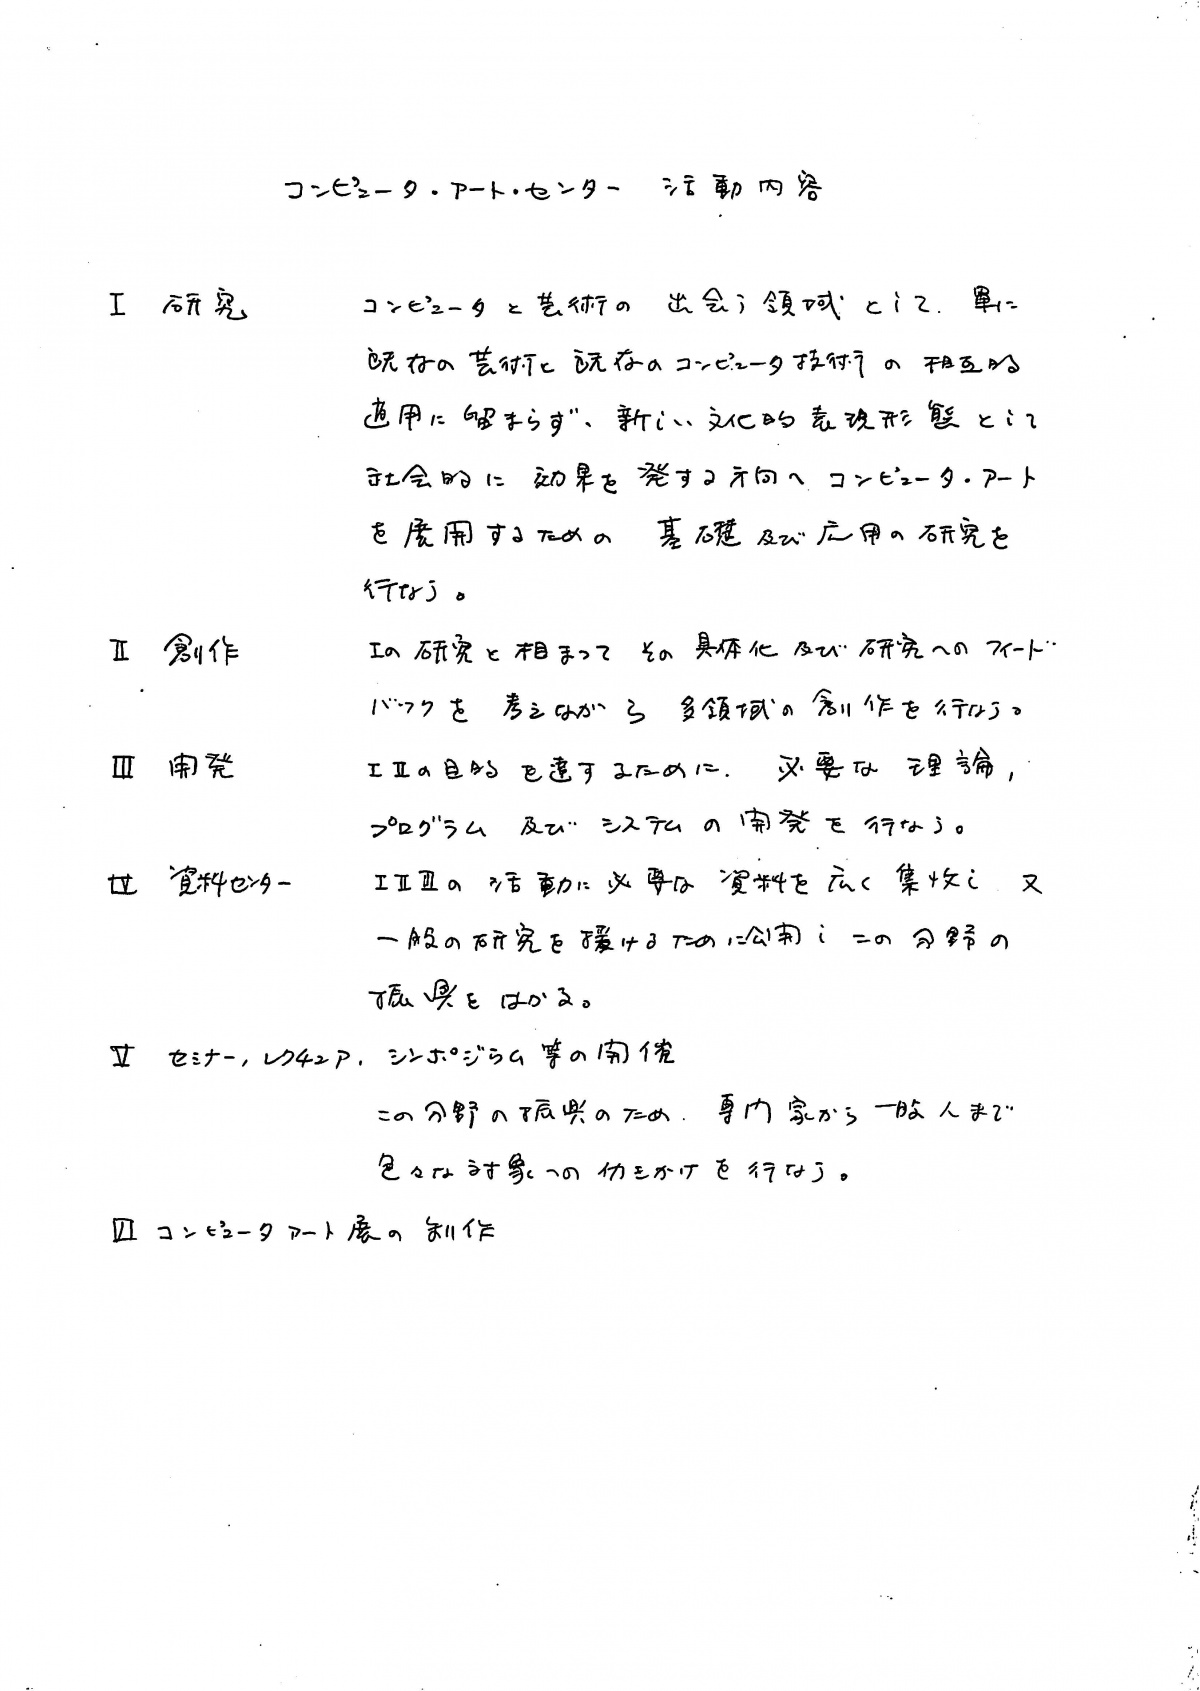 コンピュータ・アート・センター 活動内容
I 研究 コンピュータと芸術の 出会う領域として、単に
既存の芸術と既存のコンピュータ技術の相互的
適用に留まらず、新しい文化的表現形態として
社会的に効果を発する方向へコンピュータ・アート
を展開するための 基礎及び応用の研究を
行なう。
II 創作 Iの研究と相まって その具体化及び研究へのフィード
バックを考えながら 多領域の創作を行なう。
III 開発 I IIの目的を達するために、必要な理論,
プログラム 及び システムの開発を行なう。
IV 資料センター I II IIIの活動に必要な資料を広く集收し 又
一般の研究を援けるために公開し この分野の
振興をはかる。
V セミナー, レクチュア, シンポジウム等の開催
この分野の振興のため、専門家から一般人まで
色々な対象への仂きかけを行なう。
VI コンピュータアート展の制作